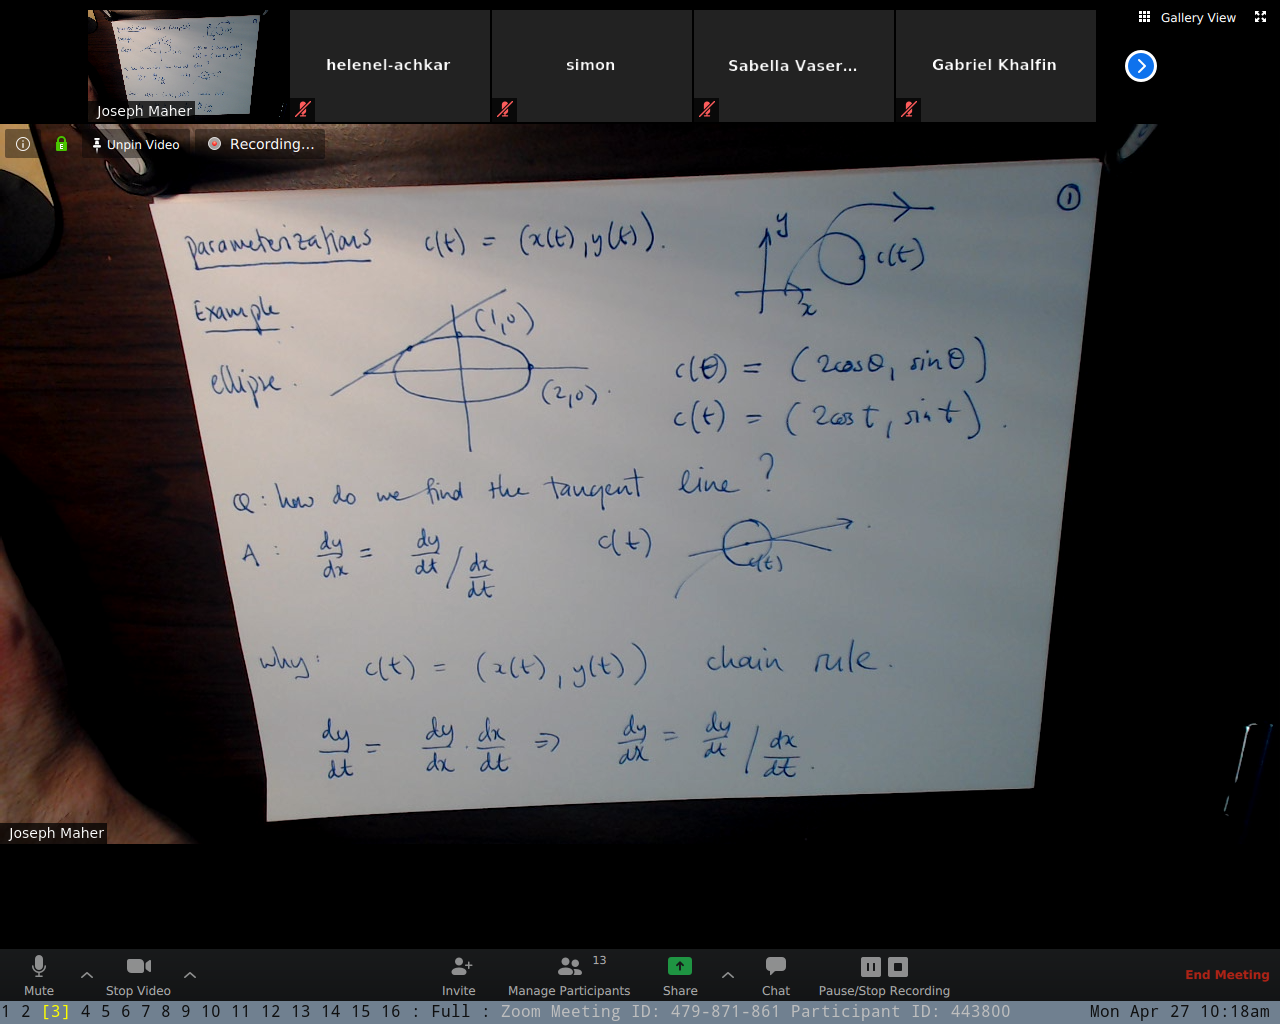 Gallery View
helenel-achkar
simon
Sabella Vaser...
Gabriel Khalfin
Joseph Maher
Unpin Video
Recording...
①
parameterizations c(t) = (x(t), y(t)).
y
c(t)
x
Example
ellipse.
(1,0)
(2,0).
c(θ) = (2cosθ, sinθ)
c(t) = (2cos t, sin t).
Q: how do we find the tangent line?
A: dy/dx = dy/dt / dx/dt c(t)
c(t)
why: c(t) = (x(t), y(t)) chain rule.
dy/dt = dy/dx · dx/dt ⇒ dy/dx = dy/dt / dx/dt.
Joseph Maher
13
Mute
Stop Video
Invite
Manage Participants
Share
Chat
Pause/Stop Recording
End Meeting
1 2 [3] 4 5 6 7 8 9 10 11 12 13 14 15 16 : Full : Zoom Meeting ID: 479-871-861 Participant ID: 443800 Mon Apr 27 10:18am